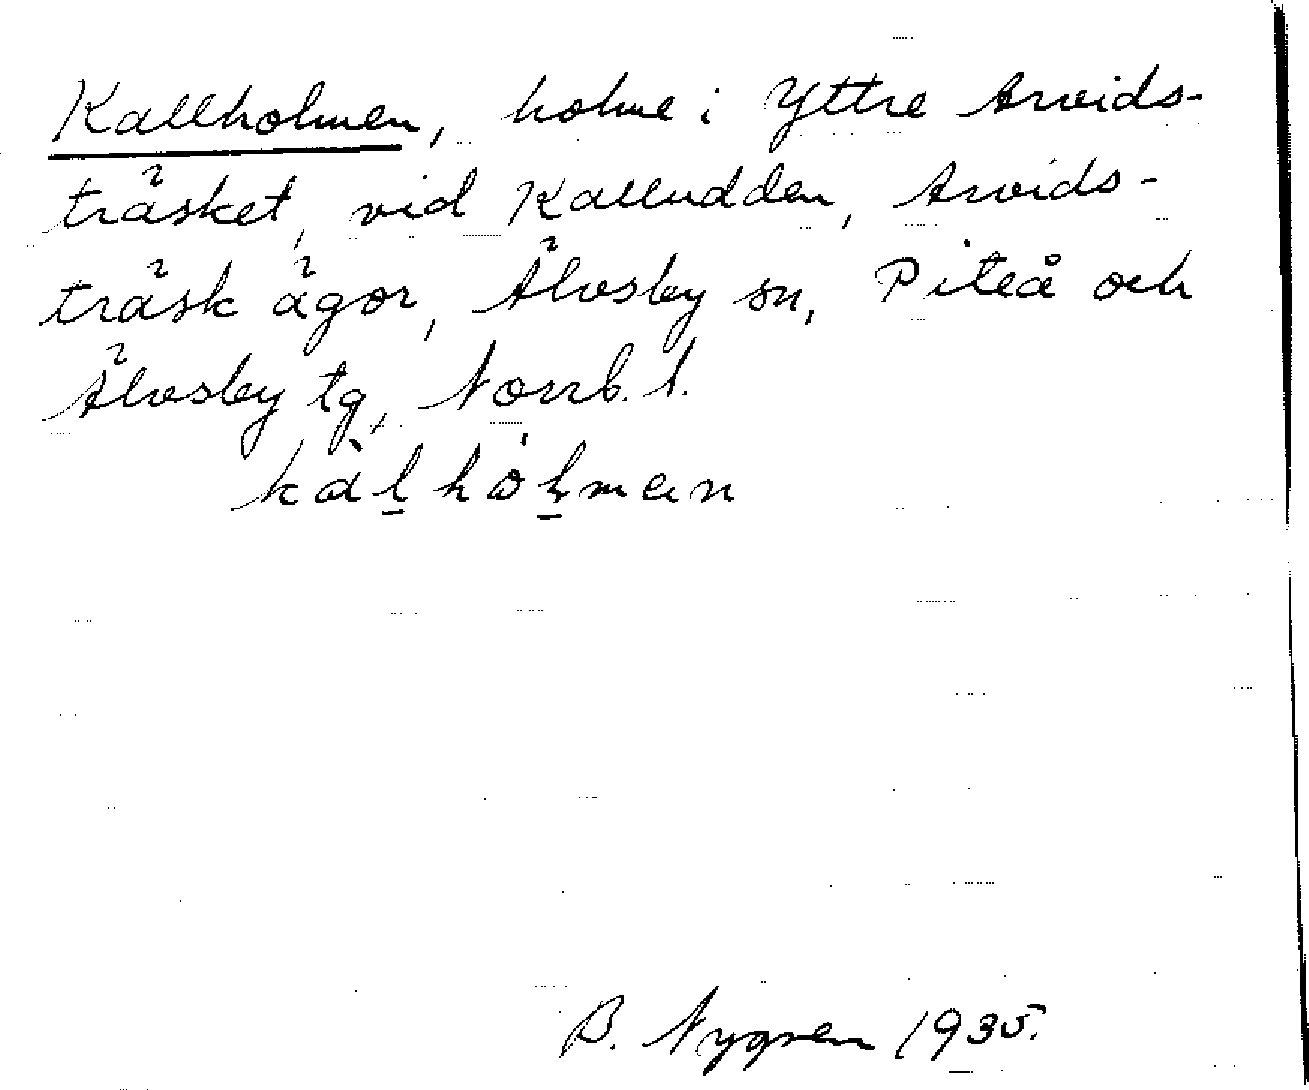 Kallholmen, holme i Yttre Arvids-
träsket, vid Kalludden, Arvids-
träsk ägor, Älvsby sn, Piteå och
Älvsby tg, Norrb. l.
kàl̠hòl̠men
B. Nygren 1935.